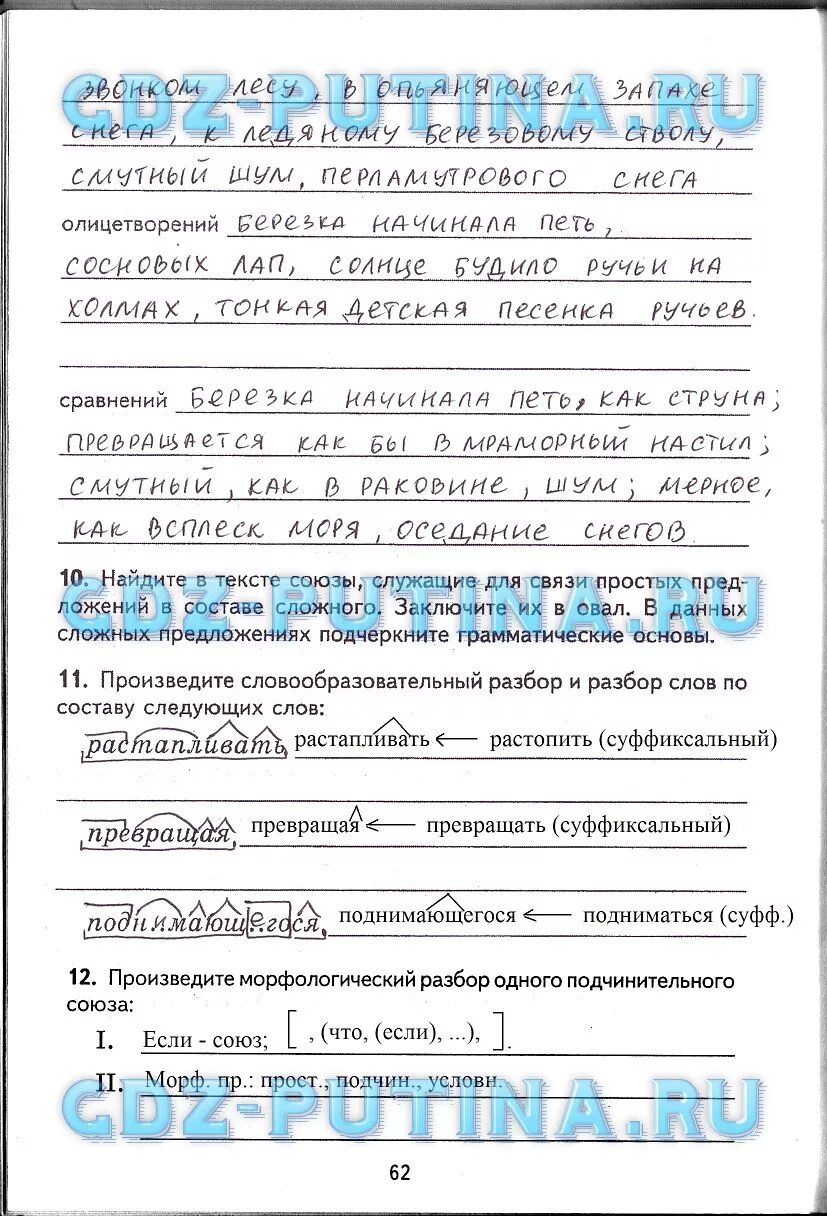 ЗВОНКОМ ЛЕСУ, В ОПЬЯНЯЮЩЕМ ЗАПАХЕ
СНЕГА, К ЛЕДЯНОМУ БЕРЕЗОВОМУ СТВОЛУ,
СМУТНЫЙ ШУМ, ПЕРЛАМУТРОВОГО СНЕГА
олицетворений БЕРЕЗКА НАЧИНАЛА ПЕТЬ,
СОСНОВЫХ ЛАП, СОЛНЦЕ БУДИЛО РУЧЬИ НА
ХОЛМАХ, ТОНКАЯ ДЕТСКАЯ ПЕСЕНКА РУЧЬЕВ.
сравнений БЕРЕЗКА НАЧИНАЛА ПЕТЬ, КАК СТРУНА;
ПРЕВРАЩАЕТСЯ КАК БЫ В МРАМОРНЫЙ НАСТИЛ;
СМУТНЫЙ, КАК В РАКОВИНЕ, ШУМ; МЕРНОЕ,
КАК ВСПЛЕСК МОРЯ, ОСЕДАНИЕ СНЕГОВ.
10. Найдите в тексте союзы, служащие для связи простых пред-
ложений в составе сложного. Заключите их в овал. В данных
сложных предложениях подчеркните грамматические основы.
11. Произведите словообразовательный разбор и разбор слов по
составу следующих слов:
растапливать растапливать ← растопить (суффиксальный)
превращая превращая ← превращать (суффиксальный)
поднимающегося поднимающегося ← подниматься (суфф.)
12. Произведите морфологический разбор одного подчинительного
союза:
I. Если - союз; [ , (что, (если), ...), ].
II. Морф. пр.: прост., подчин., условн.
62
GDZ-PUTINA.RU
GDZ-PUTINA.RU
GDZ-PUTINA.RU